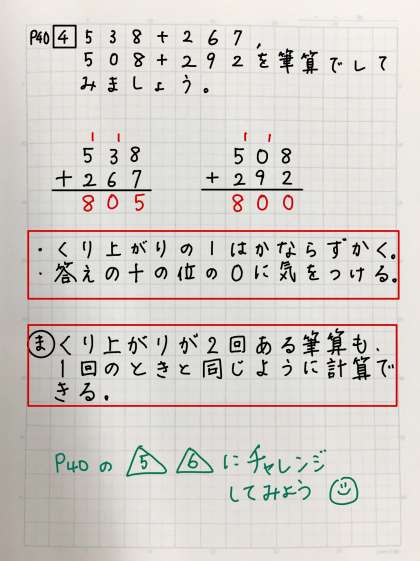 P40 4 538+267,
508+292を筆算でして
みましょう。
1 1
538
+267
805
1 1
508
+292
800
・くり上がりの1はかならずかく。
・答えの十の位の0に気をつける。
ま くり上がりが2回ある筆算も、
1回のときと同じように計算で
きる。
P40の 5 6 にチャレンジ
してみよう